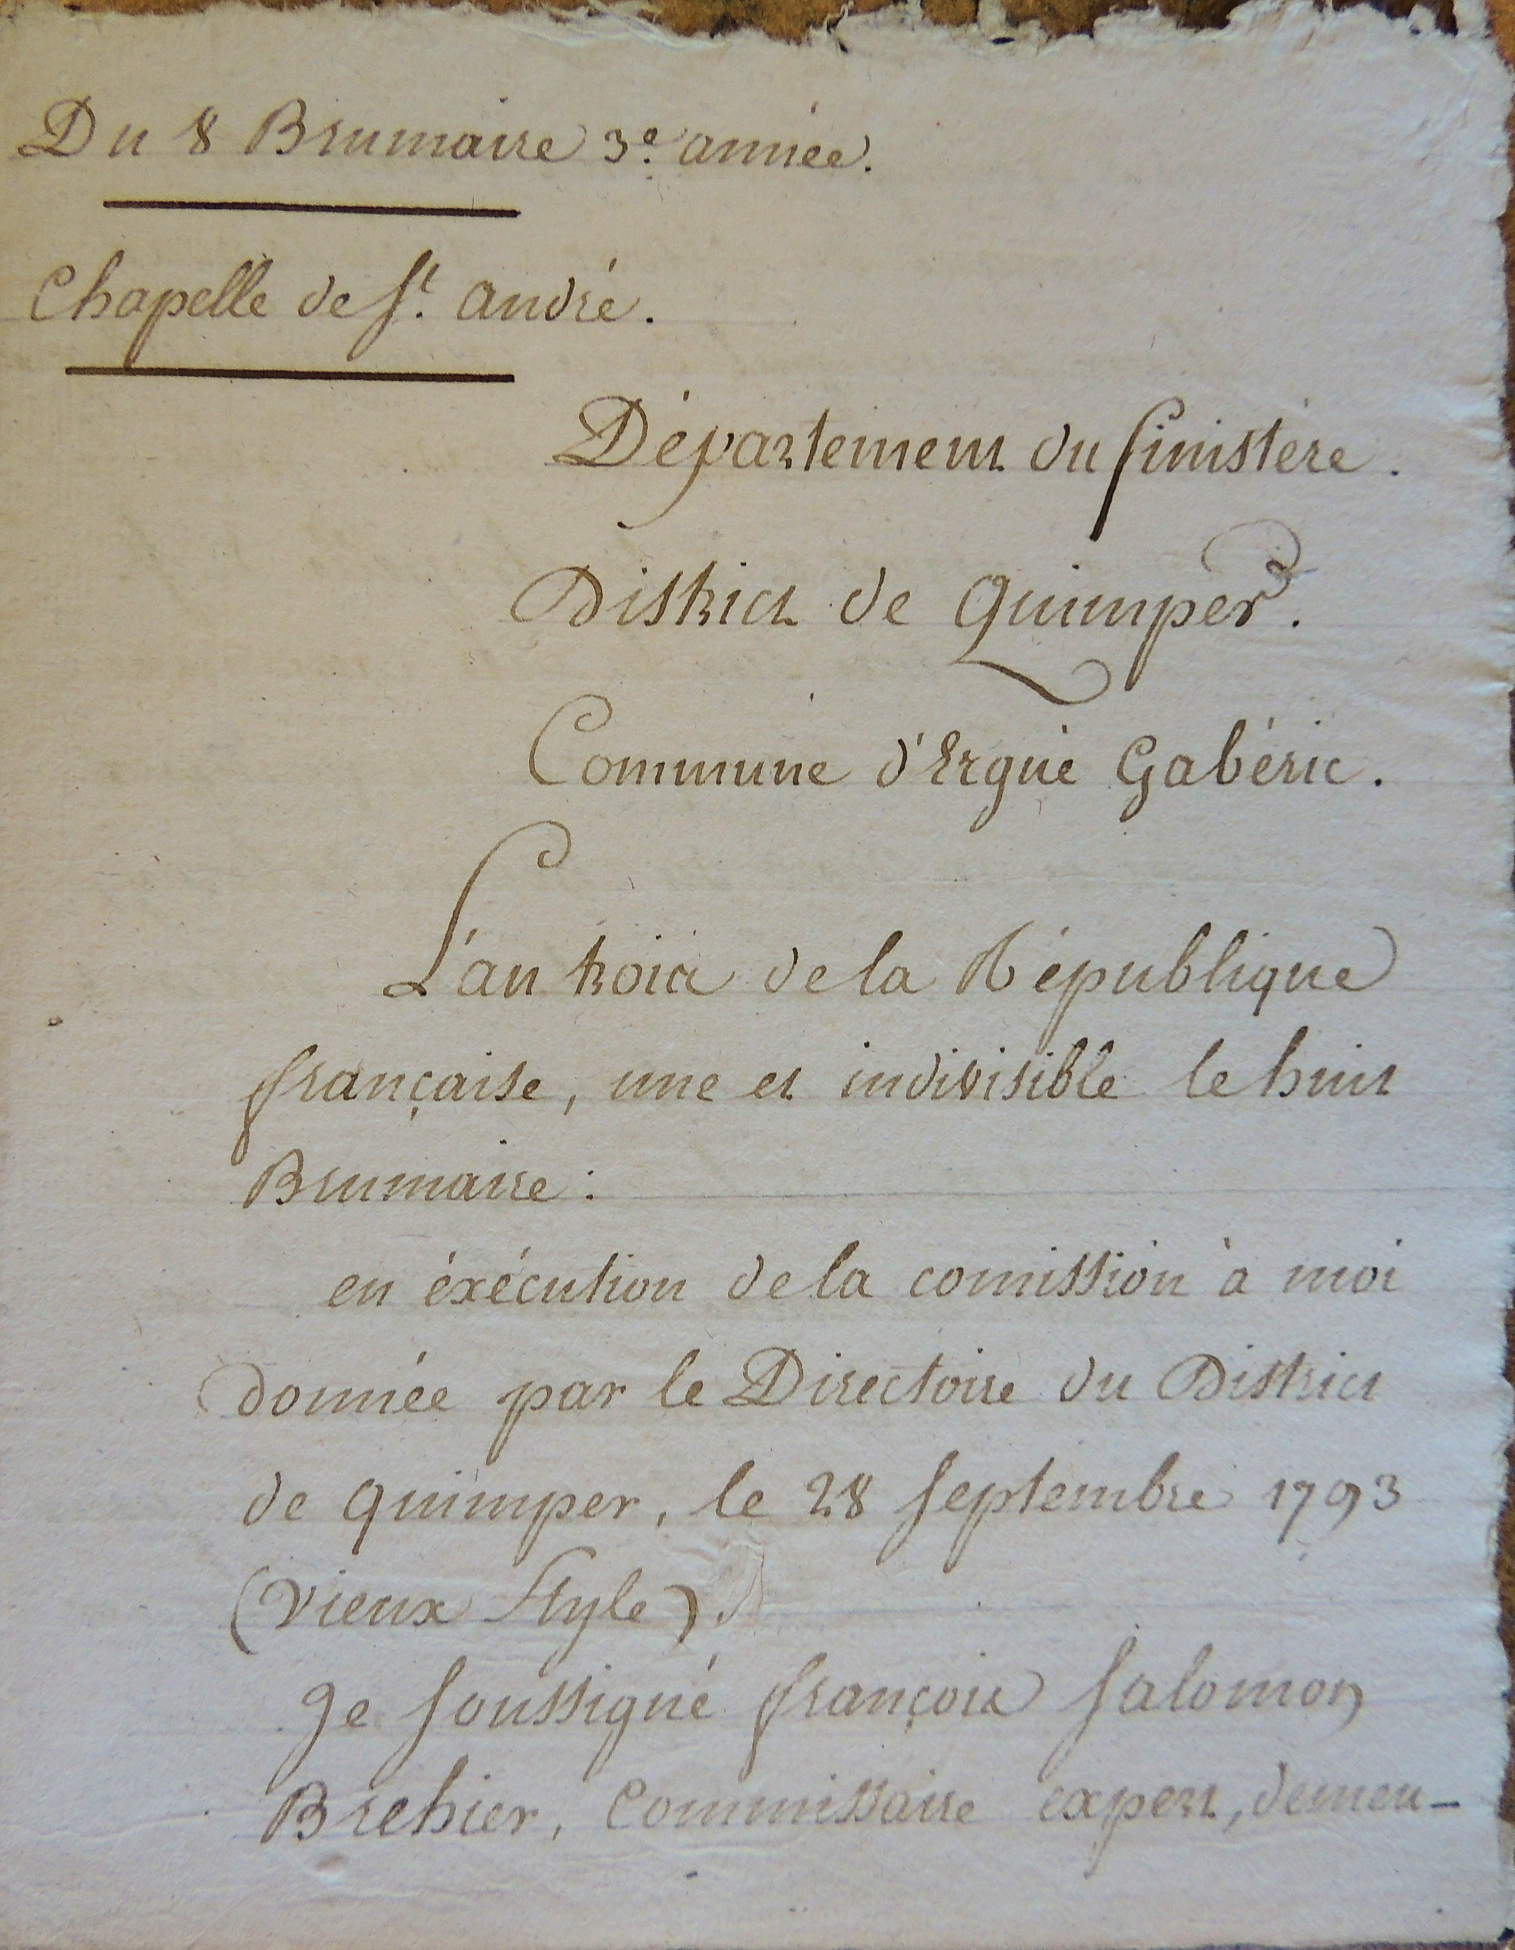 Du 8 Brumaire 3.e année.
Chapelle de St. André.
Département du finistère.
District de Quimper.
Commune d'Ergué Gabéric.
L'an trois de la République
française, une et indivisible le huit
Brumaire :
en éxécution de la comission à moi
donnée par le Directoire du District
de Quimper, le 28 Septembre 1793
(vieux Style).
Je soussigné françois Salomon
Brehier, Commissaire expert, demeu-